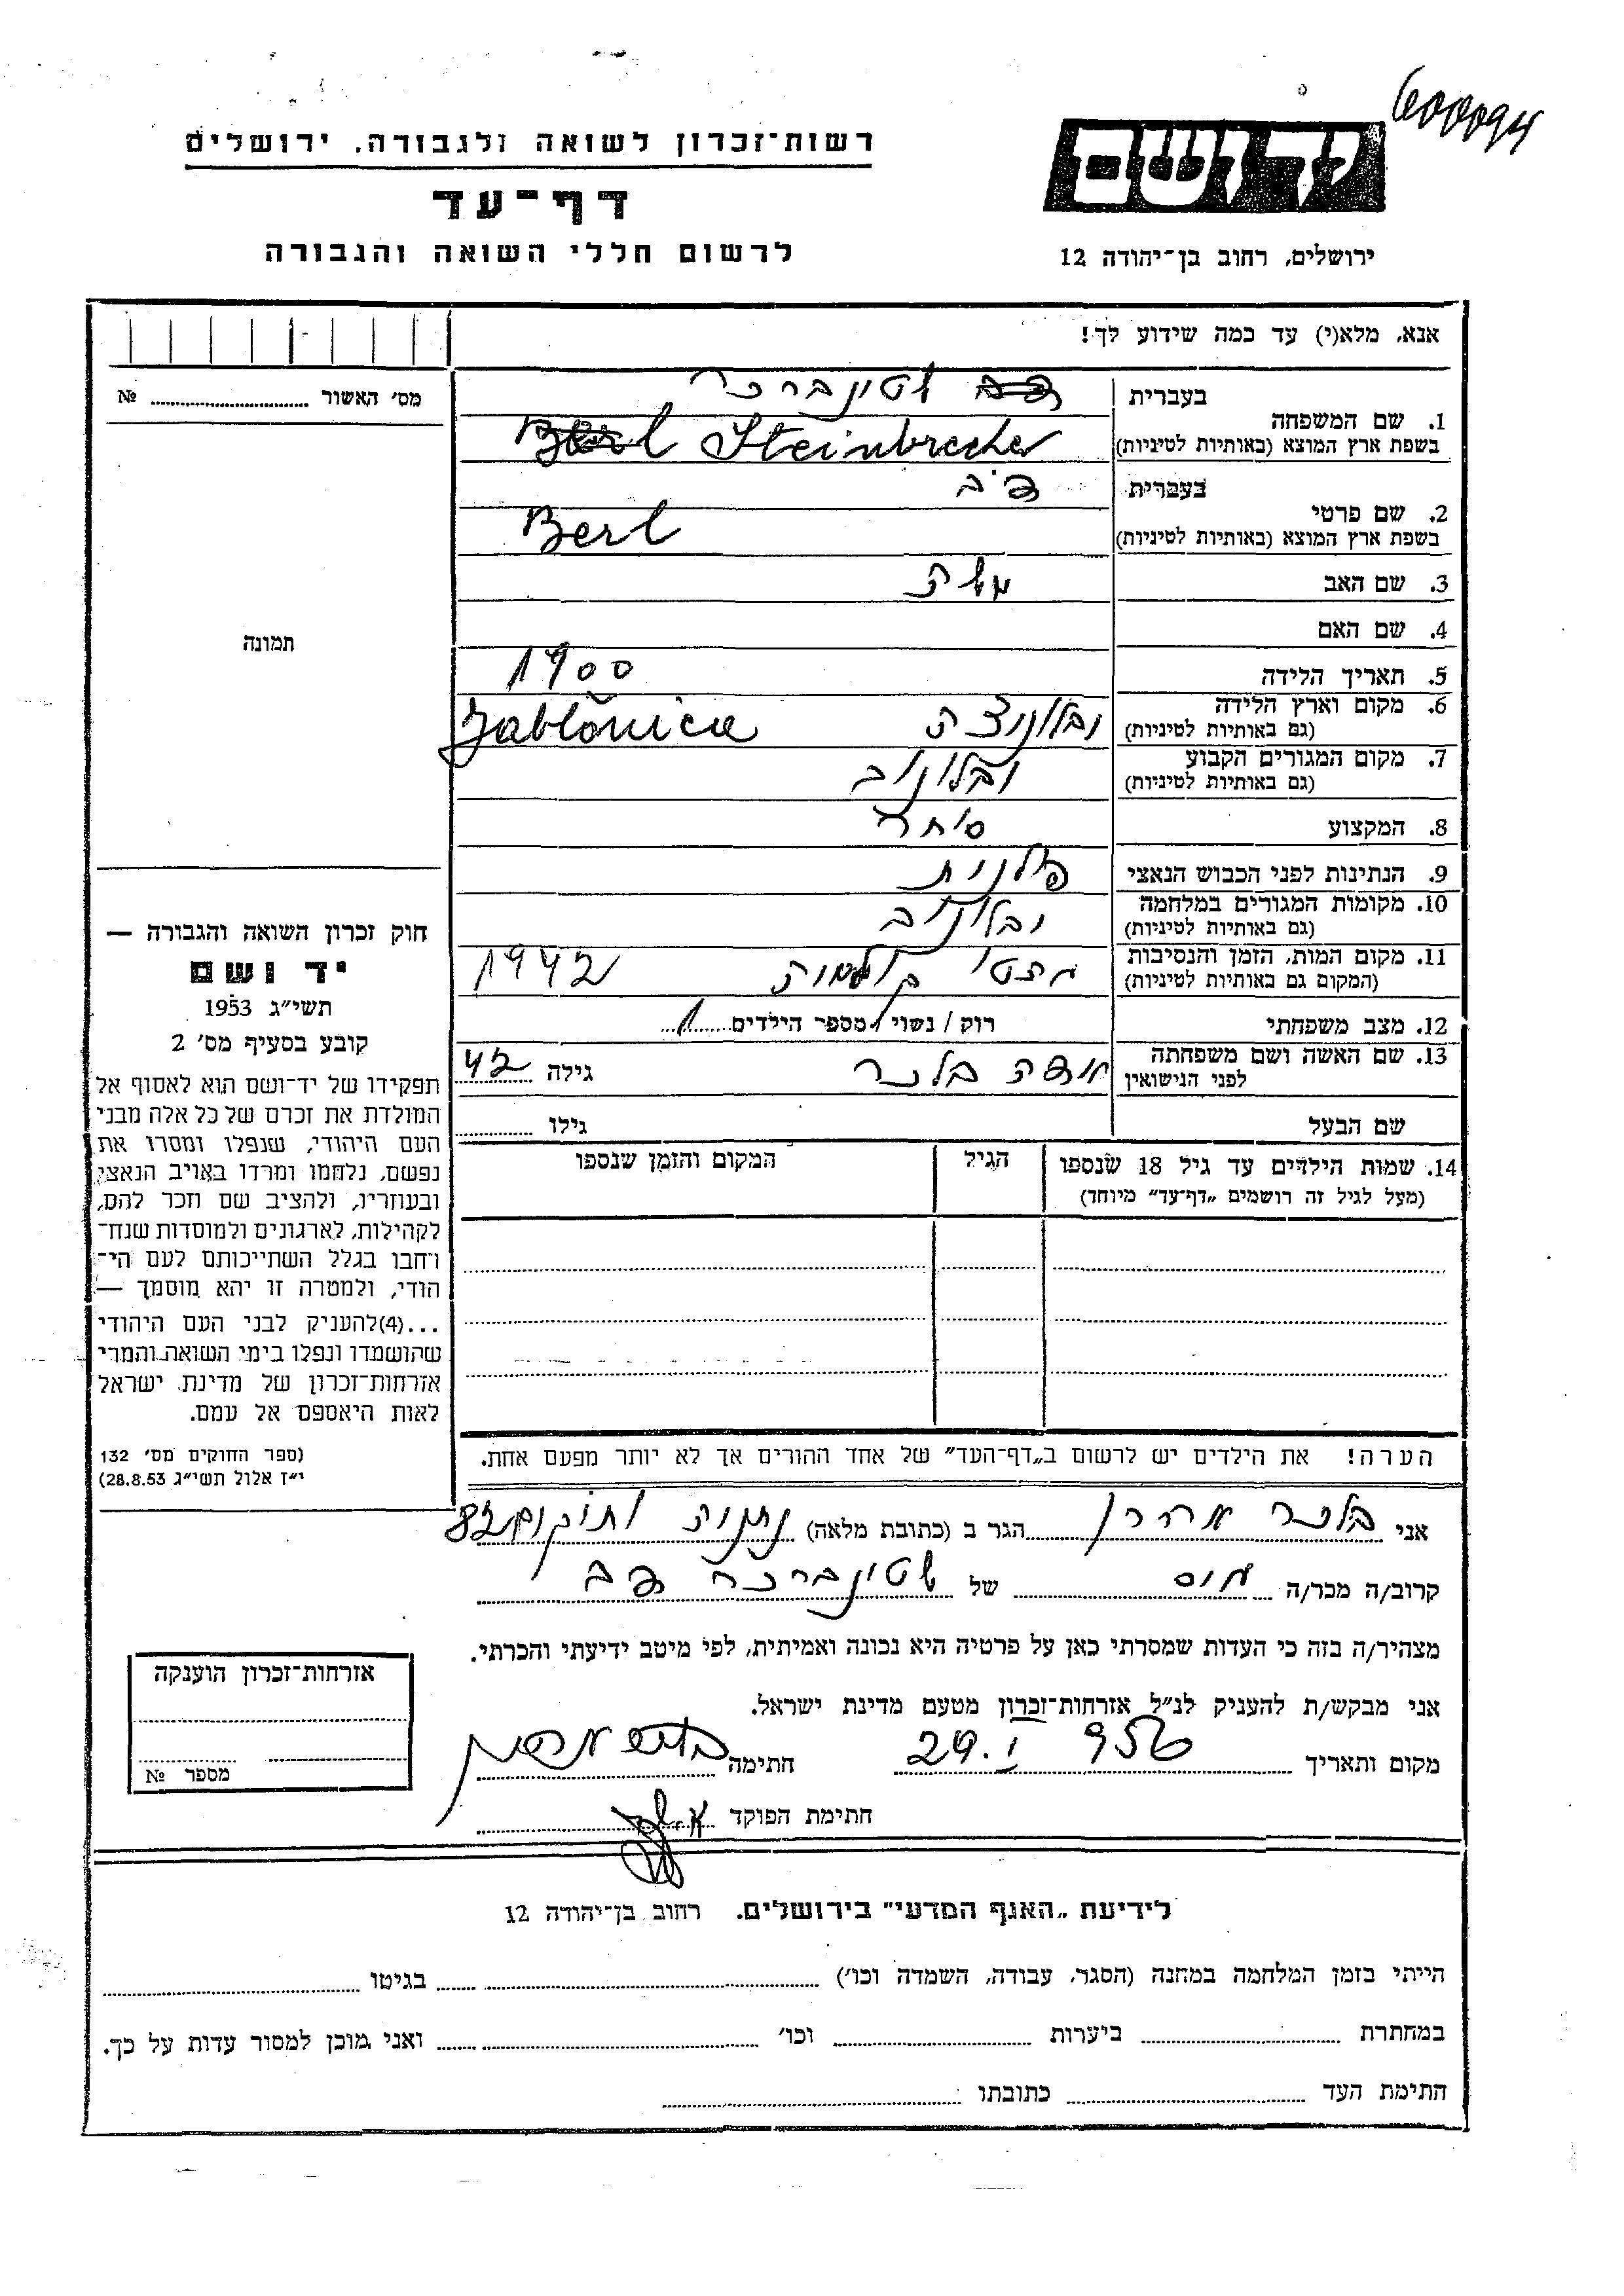 600094
רשות־זכרון לשואה ולגבורה, ירושלים
יד ושם
דף־עד
לרשום חללי השואה והגבורה
ירושלים, רחוב בן־יהודה 12
אנא, מלא(י) עד כמה שידוע לך!
מס׳ האשור № 
1. שם המשפחה בעברית שטינברכר
בשפת ארץ המוצא (באותיות לטיניות) Steinbrecher
2. שם פרטי בעברית
בשפת ארץ המוצא (באותיות לטיניות) Berl
3. שם האב משה
4. שם האם
תמונה
5. תאריך הלידה 1900
6. מקום וארץ הלידה (גם באותיות לטיניות) יבלונצה Jabłonica
7. מקום המגורים הקבוע (גם באותיות לטיניות) יבלונוב
8. המקצוע סוחר
9. הנתינות לפני הכבוש הנאצי פולנית
10. מקומות המגורים במלחמה (גם באותיות לטיניות) יבלונוב
11. מקום המות, הזמן והנסיבות (המקום גם באותיות לטיניות) 1942
12. מצב משפחתי רוק / נשוי / מספר הילדים 1
13. שם האשה ושם משפחתה לפני הנישואין בלנר גילה 42
שם הבעל גילו
14. שמות הילדים עד גיל 18 שנספו הגיל המקום והזמן שנספו
(מעל לגיל זה רושמים „דף־עד״ מיוחד)
חוק זכרון השואה והגבורה —
יד ושם
תשי״ג 1953
קובע בסעיף מס׳ 2
תפקידו של יד־ושם הוא לאסוף אל
המולדת את זכרם של כל אלה מבני
העם היהודי, שנפלו ומסרו את
נפשם, נלחמו ומרדו באויב הנאצי
ובעוזריו, ולהציב שם וזכר להם,
לקהילות, לארגונים ולמוסדות שנח־
רבו בגלל השתייכותם לעם הי־
הודי, ולמטרה זו יהא מוסמך —
...(4)להעניק לבני העם היהודי
שהושמדו ונפלו בימי השואה והמרי
אזרחות־זכרון של מדינת ישראל
לאות היאספם אל עמם.
(ספר החוקים מס׳ 132
י״ז אלול תשי״ג 28.8.53)
הערה! את הילדים יש לרשום ב„דף־העד״ של אחד ההורים אך לא יותר מפעם אחת.
אני בלנר אהרן הגר ב (כתובת מלאה) נתניה 82
קרוב/ה מכר/ה גיס של שטינברכר
מצהיר/ה בזה כי העדות שמסרתי כאן על פרטיה היא נכונה ואמיתית, לפי מיטב ידיעתי והכרתי.
אני מבקש/ת להעניק לנ״ל אזרחות־זכרון מטעם מדינת ישראל.
מקום ותאריך 29. I 956 חתימה
חתימת הפוקד
אזרחות־זכרון הוענקה
מספר №
לידיעת „האגף המדעי״ בירושלים. רחוב בן־יהודה 12
הייתי בזמן המלחמה במחנה (הסגר, עבודה, השמדה וכו׳) בגיטו
במחתרת ביערות וכו׳ ואני מוכן למסור עדות על כך.
חתימת העד כתובתו